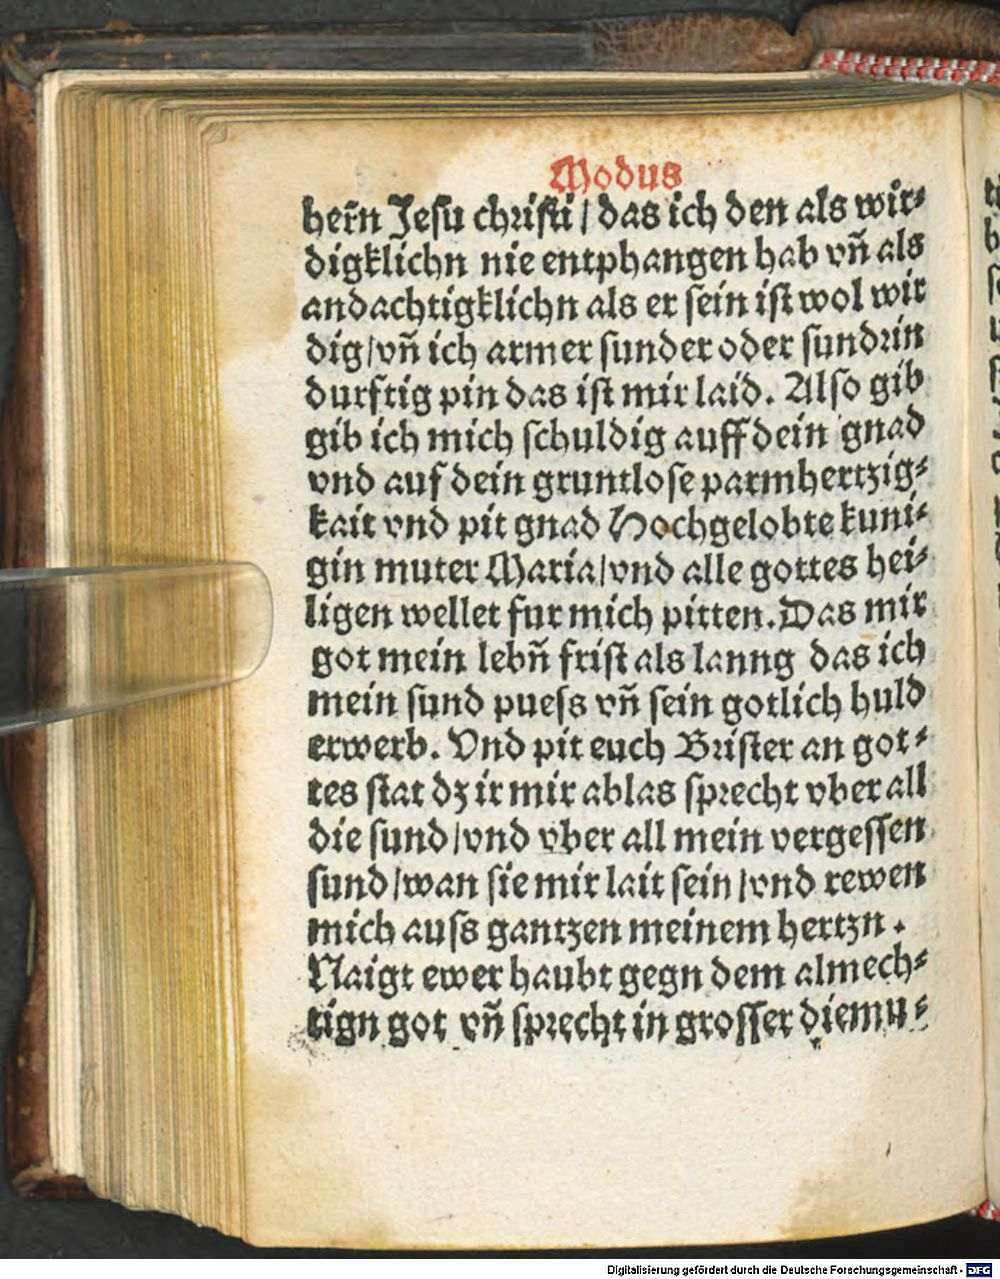 Modus
herñ Jesu christi / das ich den als wir⸗
digklichn nie entphangen hab vñ als
andachtigklichn als er sein ist wol wir
dig / vñ ich armer sunder oder sundrin
durftig pin das ist mir laid. Also gib
gib ich mich schuldig auff dein gnad
vnd auf dein gruntlose parmhertzig⸗
kait vnd pit gnad Hochgelobte kuni⸗
gin muter Maria / vnd alle gottes hei⸗
ligen wellet fur mich pitten. Das mir
got mein lebñ frist als lanng das ich
mein sund puess vñ sein gotlich huld
erwerb. Vnd pit euch Brister an got⸗
tes stat dz ir mir ablas sprecht vber all
die sund / vnd vber all mein vergessen
sund / wan sie mir lait sein / vnd rewen
mich auss gantzen meinem hertzn .
Naigt ewer haubt gegn dem almech⸗
tign got vñ sprecht in grosser diemu⸗
Digitalisierung gefördert durch die Deutsche Forschungsgemeinschaft - DFG